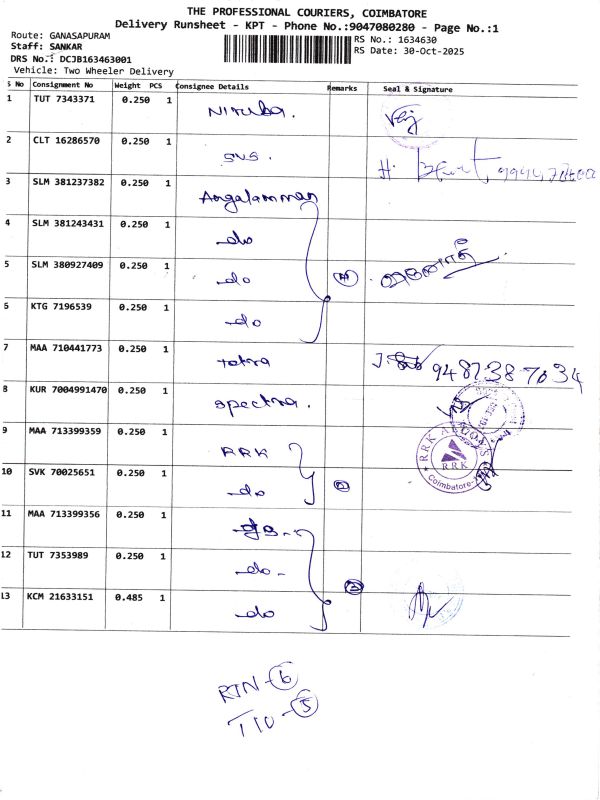 THE PROFESSIONAL COURIERS, COIMBATORE
Delivery Runsheet - KPT - Phone No.:9047080280 - Page No.:1
Route: GANASAPURAM
RS No.: 1634630
Staff: SANKAR
RS Date: 30-Oct-2025
DRS No.: DCJB163463001
Vehicle: Two Wheeler Delivery
S No Consignment No Weight PCS Consignee Details Remarks Seal & Signature
1 TUT 7343371 0.250 1 Niruba.
2 CLT 16286570 0.250 1 SNS.
3 SLM 381237382 0.250 1 Angalamman
4 SLM 381243431 0.250 1 do
5 SLM 380927409 0.250 1 do 4
6 KTG 7196539 0.250 1 do
7 MAA 710441773 0.250 1 tetra 9487387034
8 KUR 7004991470 0.250 1 spectra.
9 MAA 713399359 0.250 1 RRK
RRK
Coimbatore
10 SVK 70025651 0.250 1 do 2
11 MAA 713399356 0.250 1
12 TUT 7353989 0.250 1 do - 3
13 KCM 21633151 0.485 1 do
RTN - 6
5